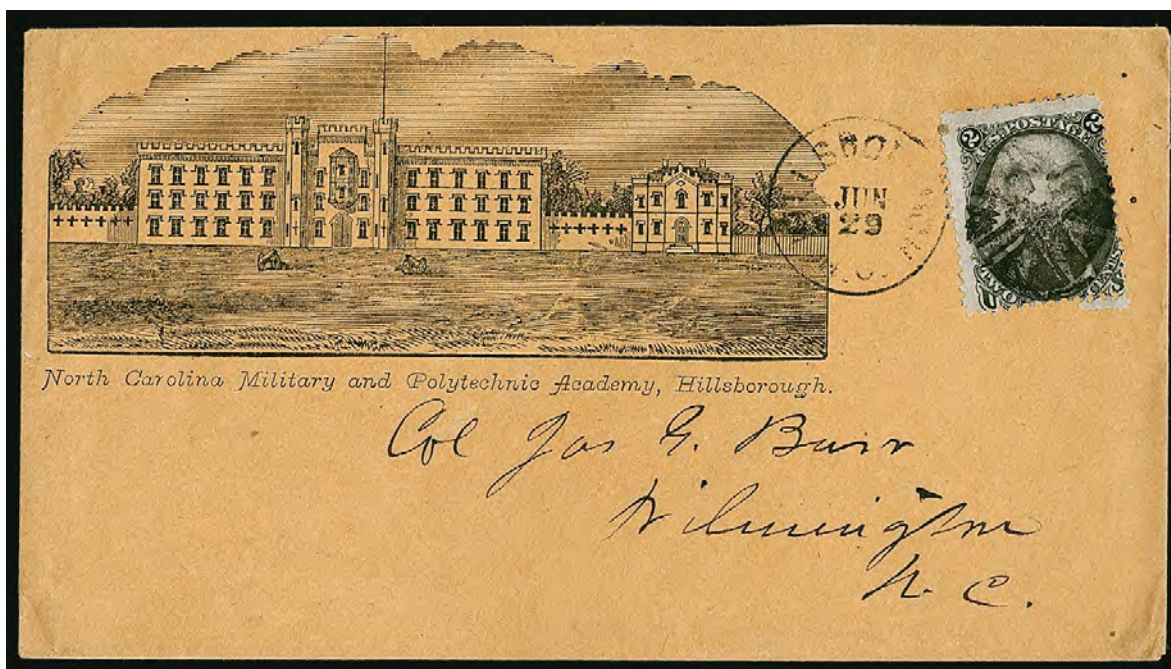 2 POSTAGE 2
JUN
29
N.C.
North Carolina Military and Polytechnic Academy, Hillsborough.
Col Jas G. Burr
Wilmington
N. C.